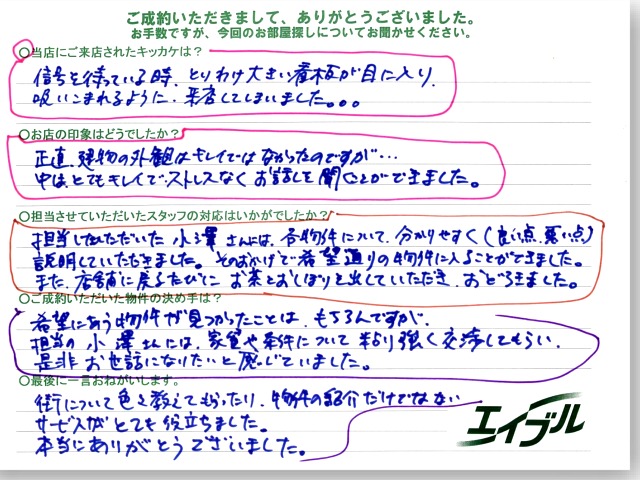 ご成約いただきまして、ありがとうございました。
お手数ですが、今回のお部屋探しについてお聞かせください。
○当店にご来店されたキッカケは？
信号を待っている時、とりわけ大きい看板が目に入り、
吸いこまれるように、来店してしまいました。。。
○お店の印象はどうでしたか？
正直、建物の外観はキレイではなかったのですが…
中はとてもキレイで、ストレスなくお話しを聞くことができました。
○担当させていただいたスタッフの対応はいかがでしたか？
担当していただいた小澤さんには、各物件について、分かりやすく(良い点、悪い点)
説明していただきました。そのおかげで希望通りの物件に入ることができました。
また、店舗に戻るたびに お茶とおしぼりを出していただき、おどろきました。
○ご成約いただいた物件の決め手は？
希望にあう物件が見つかったことは、もちろんですが、
担当の小澤さんには、家賃や条件について粘り強く交渉してもらい、
是非お世話になりたいと感じていました。
○最後に一言おねがいします。
街について色々教えてもらったり、物件の紹介だけでない
サービスがとても役立ちました。
本当にありがとうございました。
エイブル